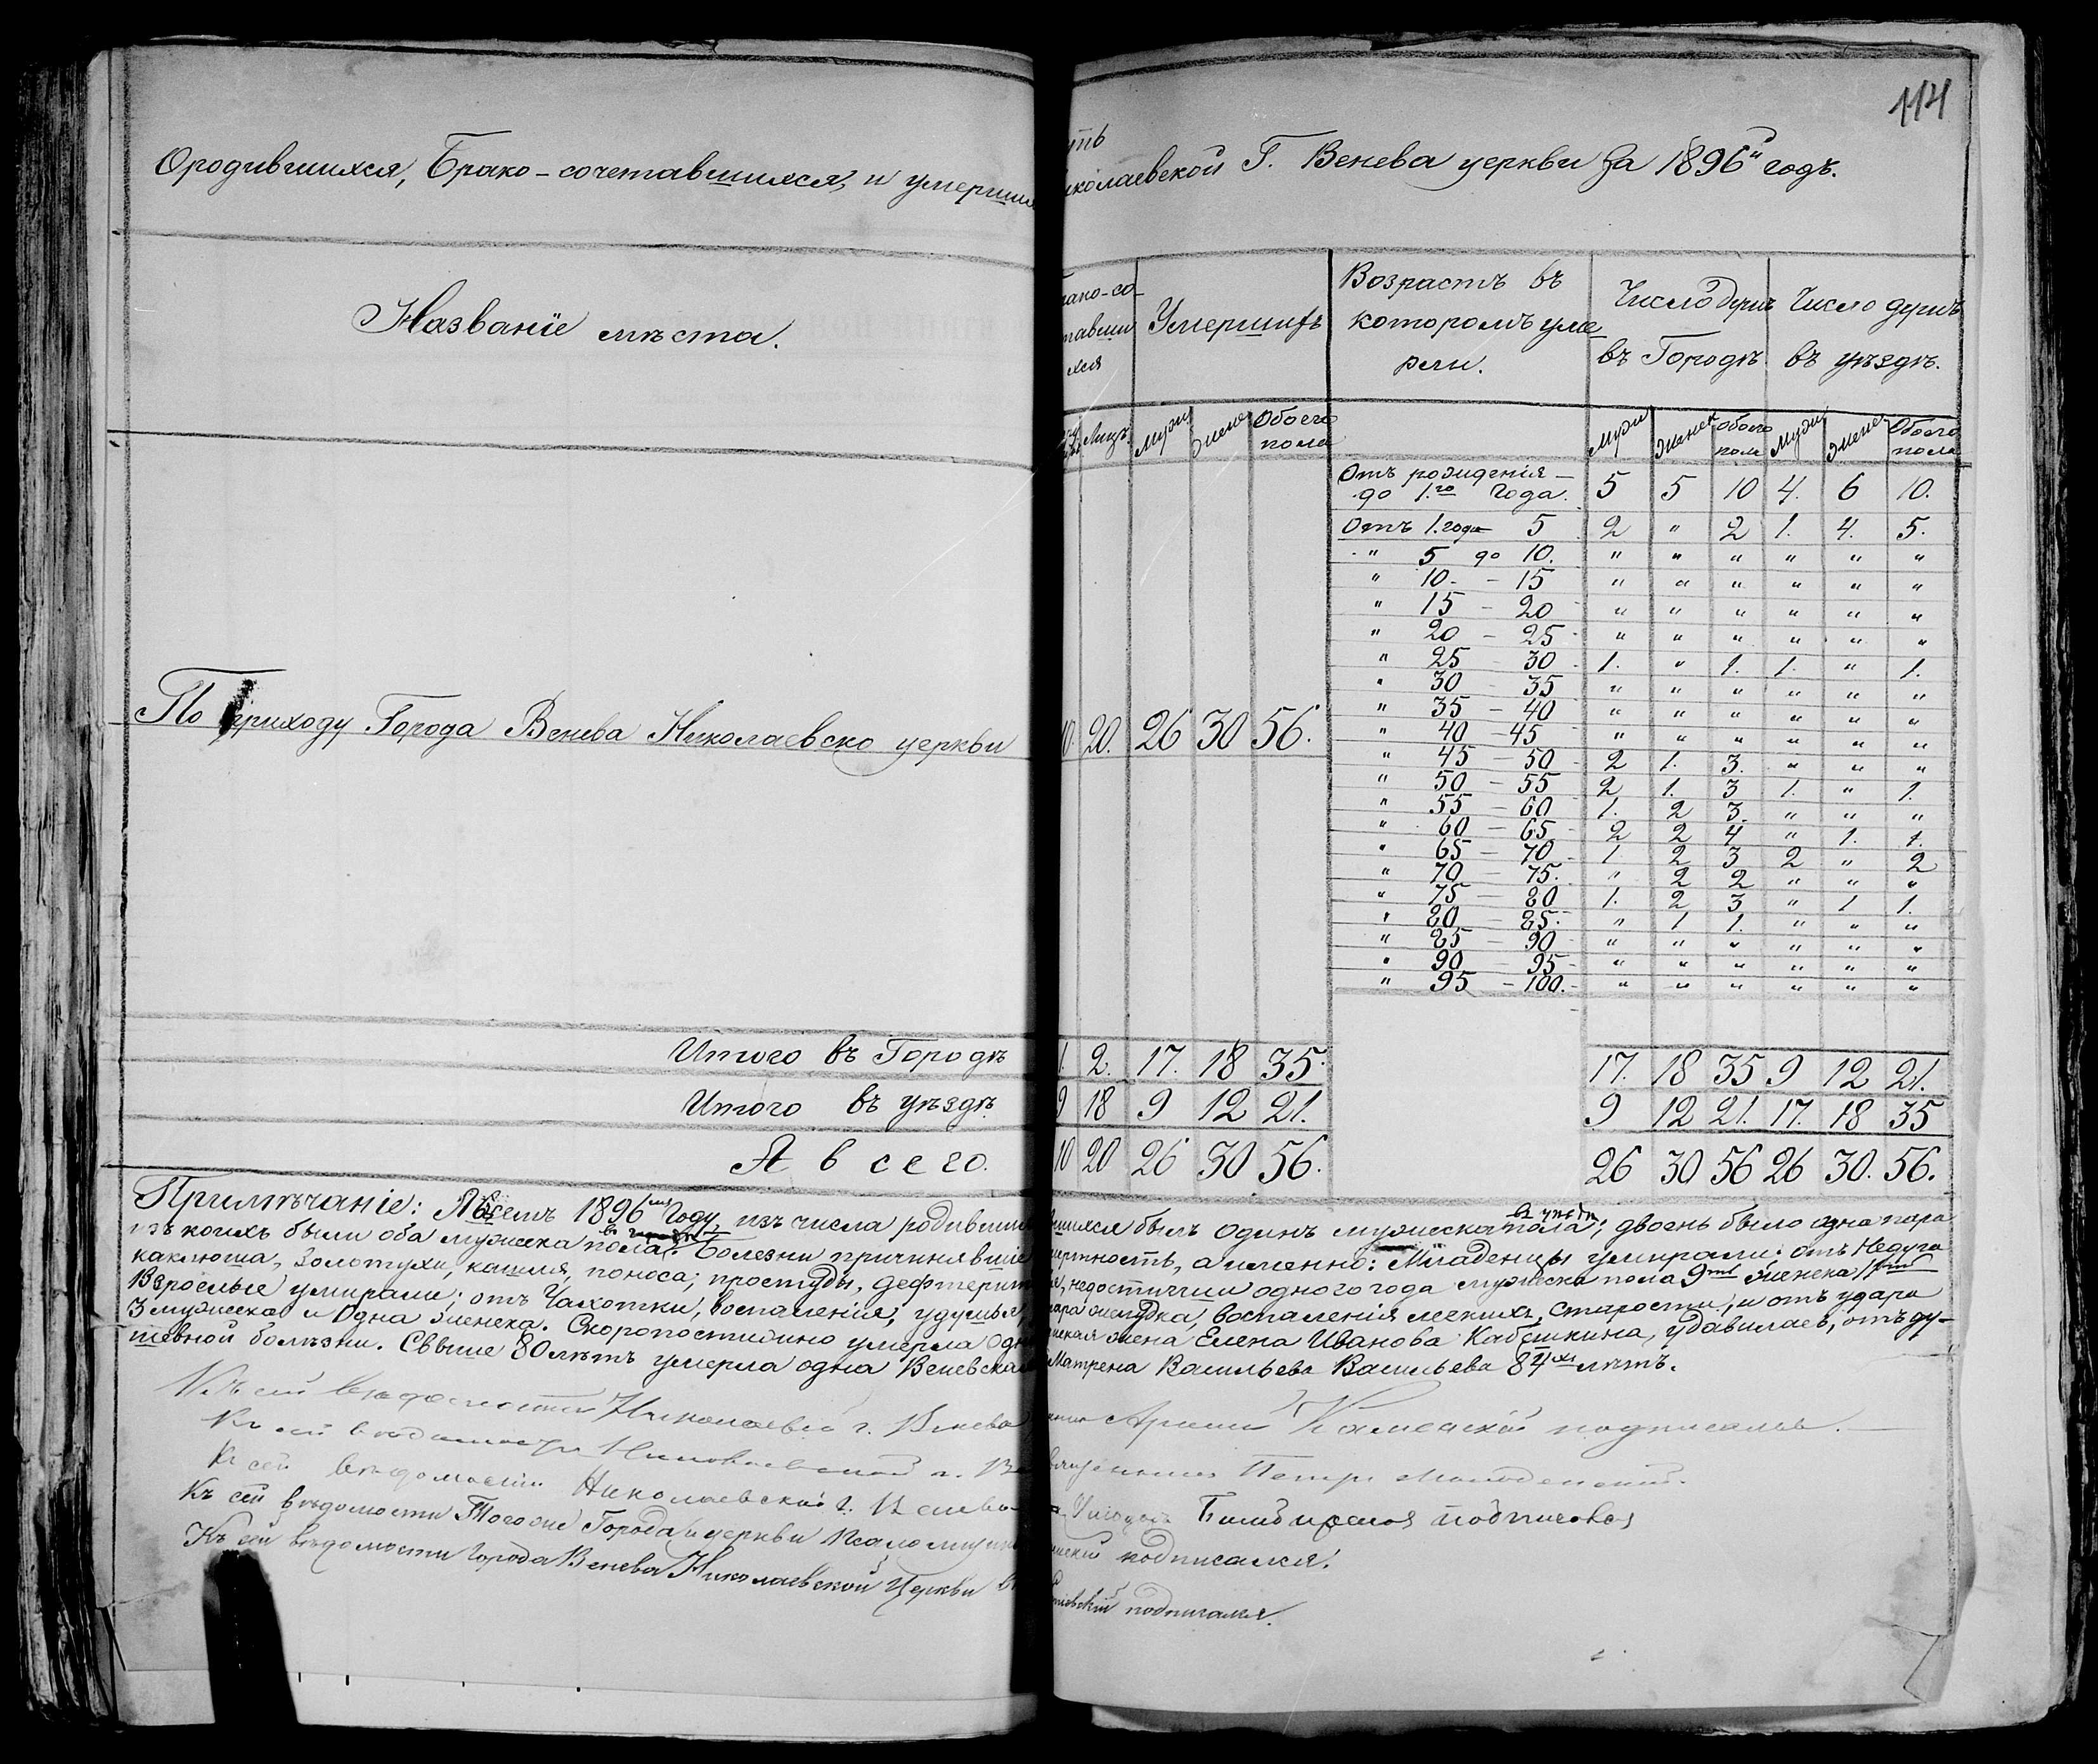 114
ть
Ородившихся, Брако-сочетавшихся, и умерши
иколаевской Г. Венева церкви За 1896й годъ.
Названіе мѣста.
рако-со-
тавши
хся
Умершихъ
Возрастъ въ
которомъ уме
рли.
Число душъ
въ Городѣ.
Число душъ
въ уѣздѣ.
Лицъ. Мужи Жене Обоего пола
Мужи Женек Обоего пола Мужи Женек Обоего пола
Отъ рожденія —
до 1.го Года. 5 5 10 4. 6 10.
Отъ 1. года 5 2 " 2 1. 4. 5.
" 5 до 10. " " " " " "
" 10 - 15 " " " " " "
" 15 - 20 " " " " " "
" 20 - 25 " " " " " "
" 25 - 30 1. " 1. 1. " 1.
" 30 - 35 " " " " " "
" 35 - 40 " " " " " "
По приходу Города Венева Николаевско церкви
10. 20. 26 30 56.
" 40 - 45 " " " " " "
" 45 - 50 2 1. 3. " " "
" 50 - 55 2 1. 3 1. " 1.
" 55 - 60 1. 2 3. " " "
" 60 - 65 2 2 4 " 1. 1.
" 65 - 70 1. 2 3 2 " 2
" 70 - 75. " 2 2 " " "
" 75 - 80 1. 2 3 " 1 1.
" 80 - 85. " 1 1. " " "
" 85 - 90 " " " " " "
" 90 - 95 " " " " " "
" 95 - 100. " " " " " "
Итого въ Городѣ 1. 2. 17. 18 35. 17. 18 35 9 12 21.
Итого въ уѣздѣ. 9 18 9 12 21. 9 12 21. 17. 18 35
А всего. 10 20 26 30 56. 26 30 56 26 30. 56.
Примѣчаніе: Въ семъ 1896 Году, изъ числа родивши
шихся былъ одинъ мужеска пола въ уѣздѣ; двоень было одна пара
изъ коихъ были оба мужеска пола въ городѣ. Болезни причинявшие
мертность, а именно: Младенцы умирали: отъ Недуга
каклюша, Золотухи, кашля, поноса; простуды, дефтерит
недостигши одного года мужеска пола 9ть женска 11ть
Взрослые умирали; отъ Чахотки, воспаления, удушья,
желудка, воспаления легкихъ, старости, и отъ удара
3 мужеска и Одна женска. Скоропостижно умерла одна
жена Елена Иванова Кабешкина, удавилась, отъ ду-
шевной болѣзни. Свыше 80 лѣтъ умерла одна Веневская
Матрена Васильева Васильева 84хъ лѣтъ.
Къ сей вѣдомости Николаевской г. Венева
Каменскій подписалъ.
Къ сей вѣдомости Николаевской г. Ве
Петръ
Къ сей вѣдомости Николаевской г. Венева
подписался
Къ сей вѣдомости Тогоже Города и церкви Псаломщик
подписался.
Къ сей вѣдомости Города Венева Николаевской Церкви
подписался.